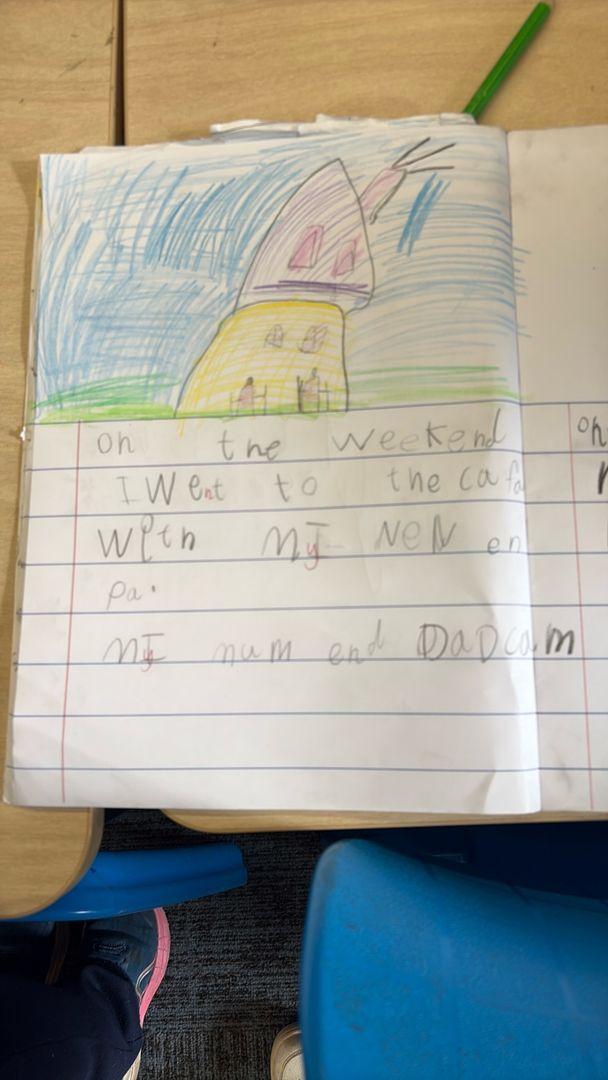 on the weekend
I Went to the cafa
With My NeN en
pa.
My mum end DaD cam
on